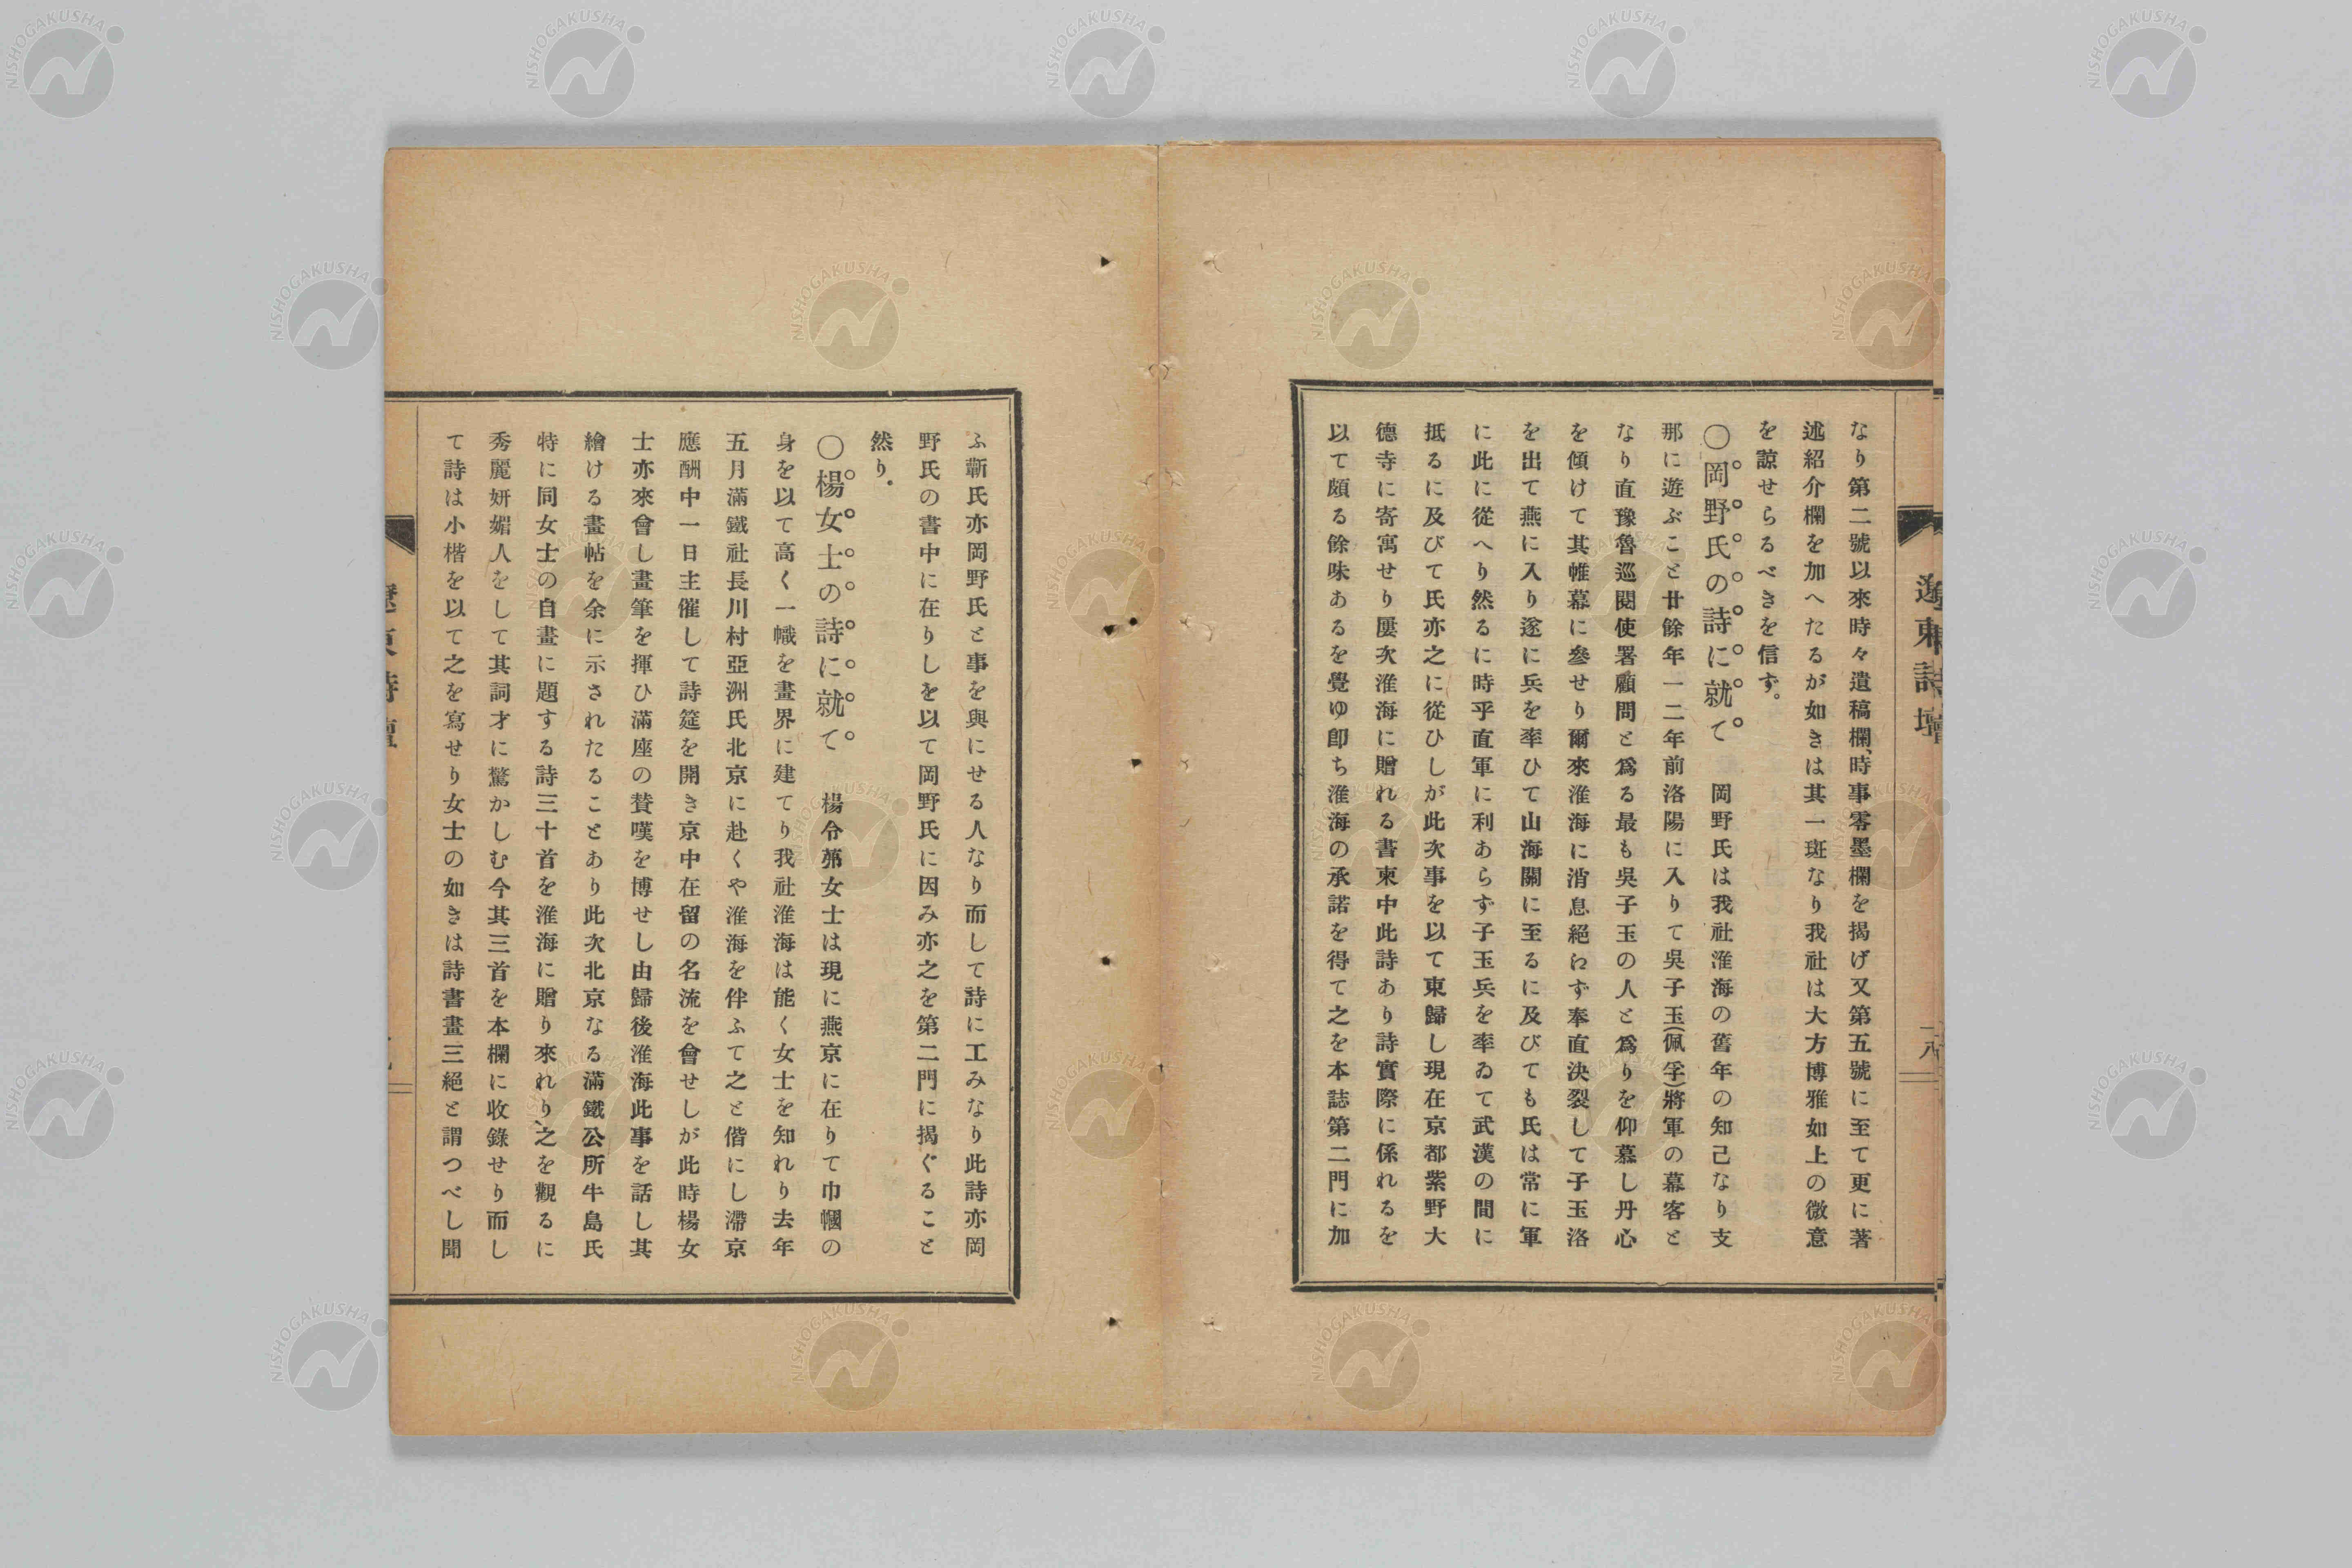 遼東詩壇
一八
なり第二號以來時々遺稿欄、時事零墨欄を揭げ又第五號に至て更に著
述紹介欄を加へたるが如きは其一班なり我社は大方博雅如上の微意
を諒せらるべきを信す。
〇岡野氏の詩に就て 岡野氏は我社淮海の舊年の知己なり支
那に遊ぶこと廿餘年一二年前洛陽に入りて吳子玉(佩孚)將軍の幕客と
なり直豫魯巡閱使署顧問と爲る最も吳子玉の人と爲りを仰慕し丹心
を傾けて其帷幕に參せり爾來淮海に消息絕わず奉直決裂して子玉洛
を出て燕に入り遂に兵を率ひて山海關に至るに及びても氏は常に軍
に此に從へり然るに時乎直軍に利あらず子玉兵を率ゐて武漢の間に
抵るに及びて氏亦之に從ひしが此次事を以て東歸し現在京都紫野大
德寺に寄寓せり屢次淮海に贈れる書柬中此詩あり詩實際に係れるを
以て頗る餘味あるを覺ゆ卽ち淮海の承諾を得て之を本誌第二門に加
ふ蘄氏亦岡野氏と事を與にせる人なり而して詩に工みなり此詩亦岡
野氏の書中に在りしを以て岡野氏に因み亦之を第二門に揭ぐること
然り。
〇楊女士の詩に就て 楊令茀女士は現に燕京に在りて巾幗の
身を以て高く一幟を畫界に建てり我社淮海は能く女士を知れり去年
五月滿鐵社長川村亞洲氏北京に赴くや淮海を伴ふて之と偕にし滯京
應酬中一日主催して詩筵を開き京中在留の名流を會せしが此時楊女
士亦來會し畫筆を揮ひ滿座の贊嘆を博せし由歸後淮海此事を話し其
繪ける畫帖を余に示されたることあり此次北京なる滿鐵公所牛島氏
特に同女士の自畫に題する詩三十首を淮海に贈り來れり、之を觀るに
秀麗姸媚人をして其詞才に驚かしむ今其三首を本欄に收錄せり而し
て詩は小楷を以て之を寫せり女士の如きは詩書畫三絕と謂つべし聞
NISHOGAKUSHA